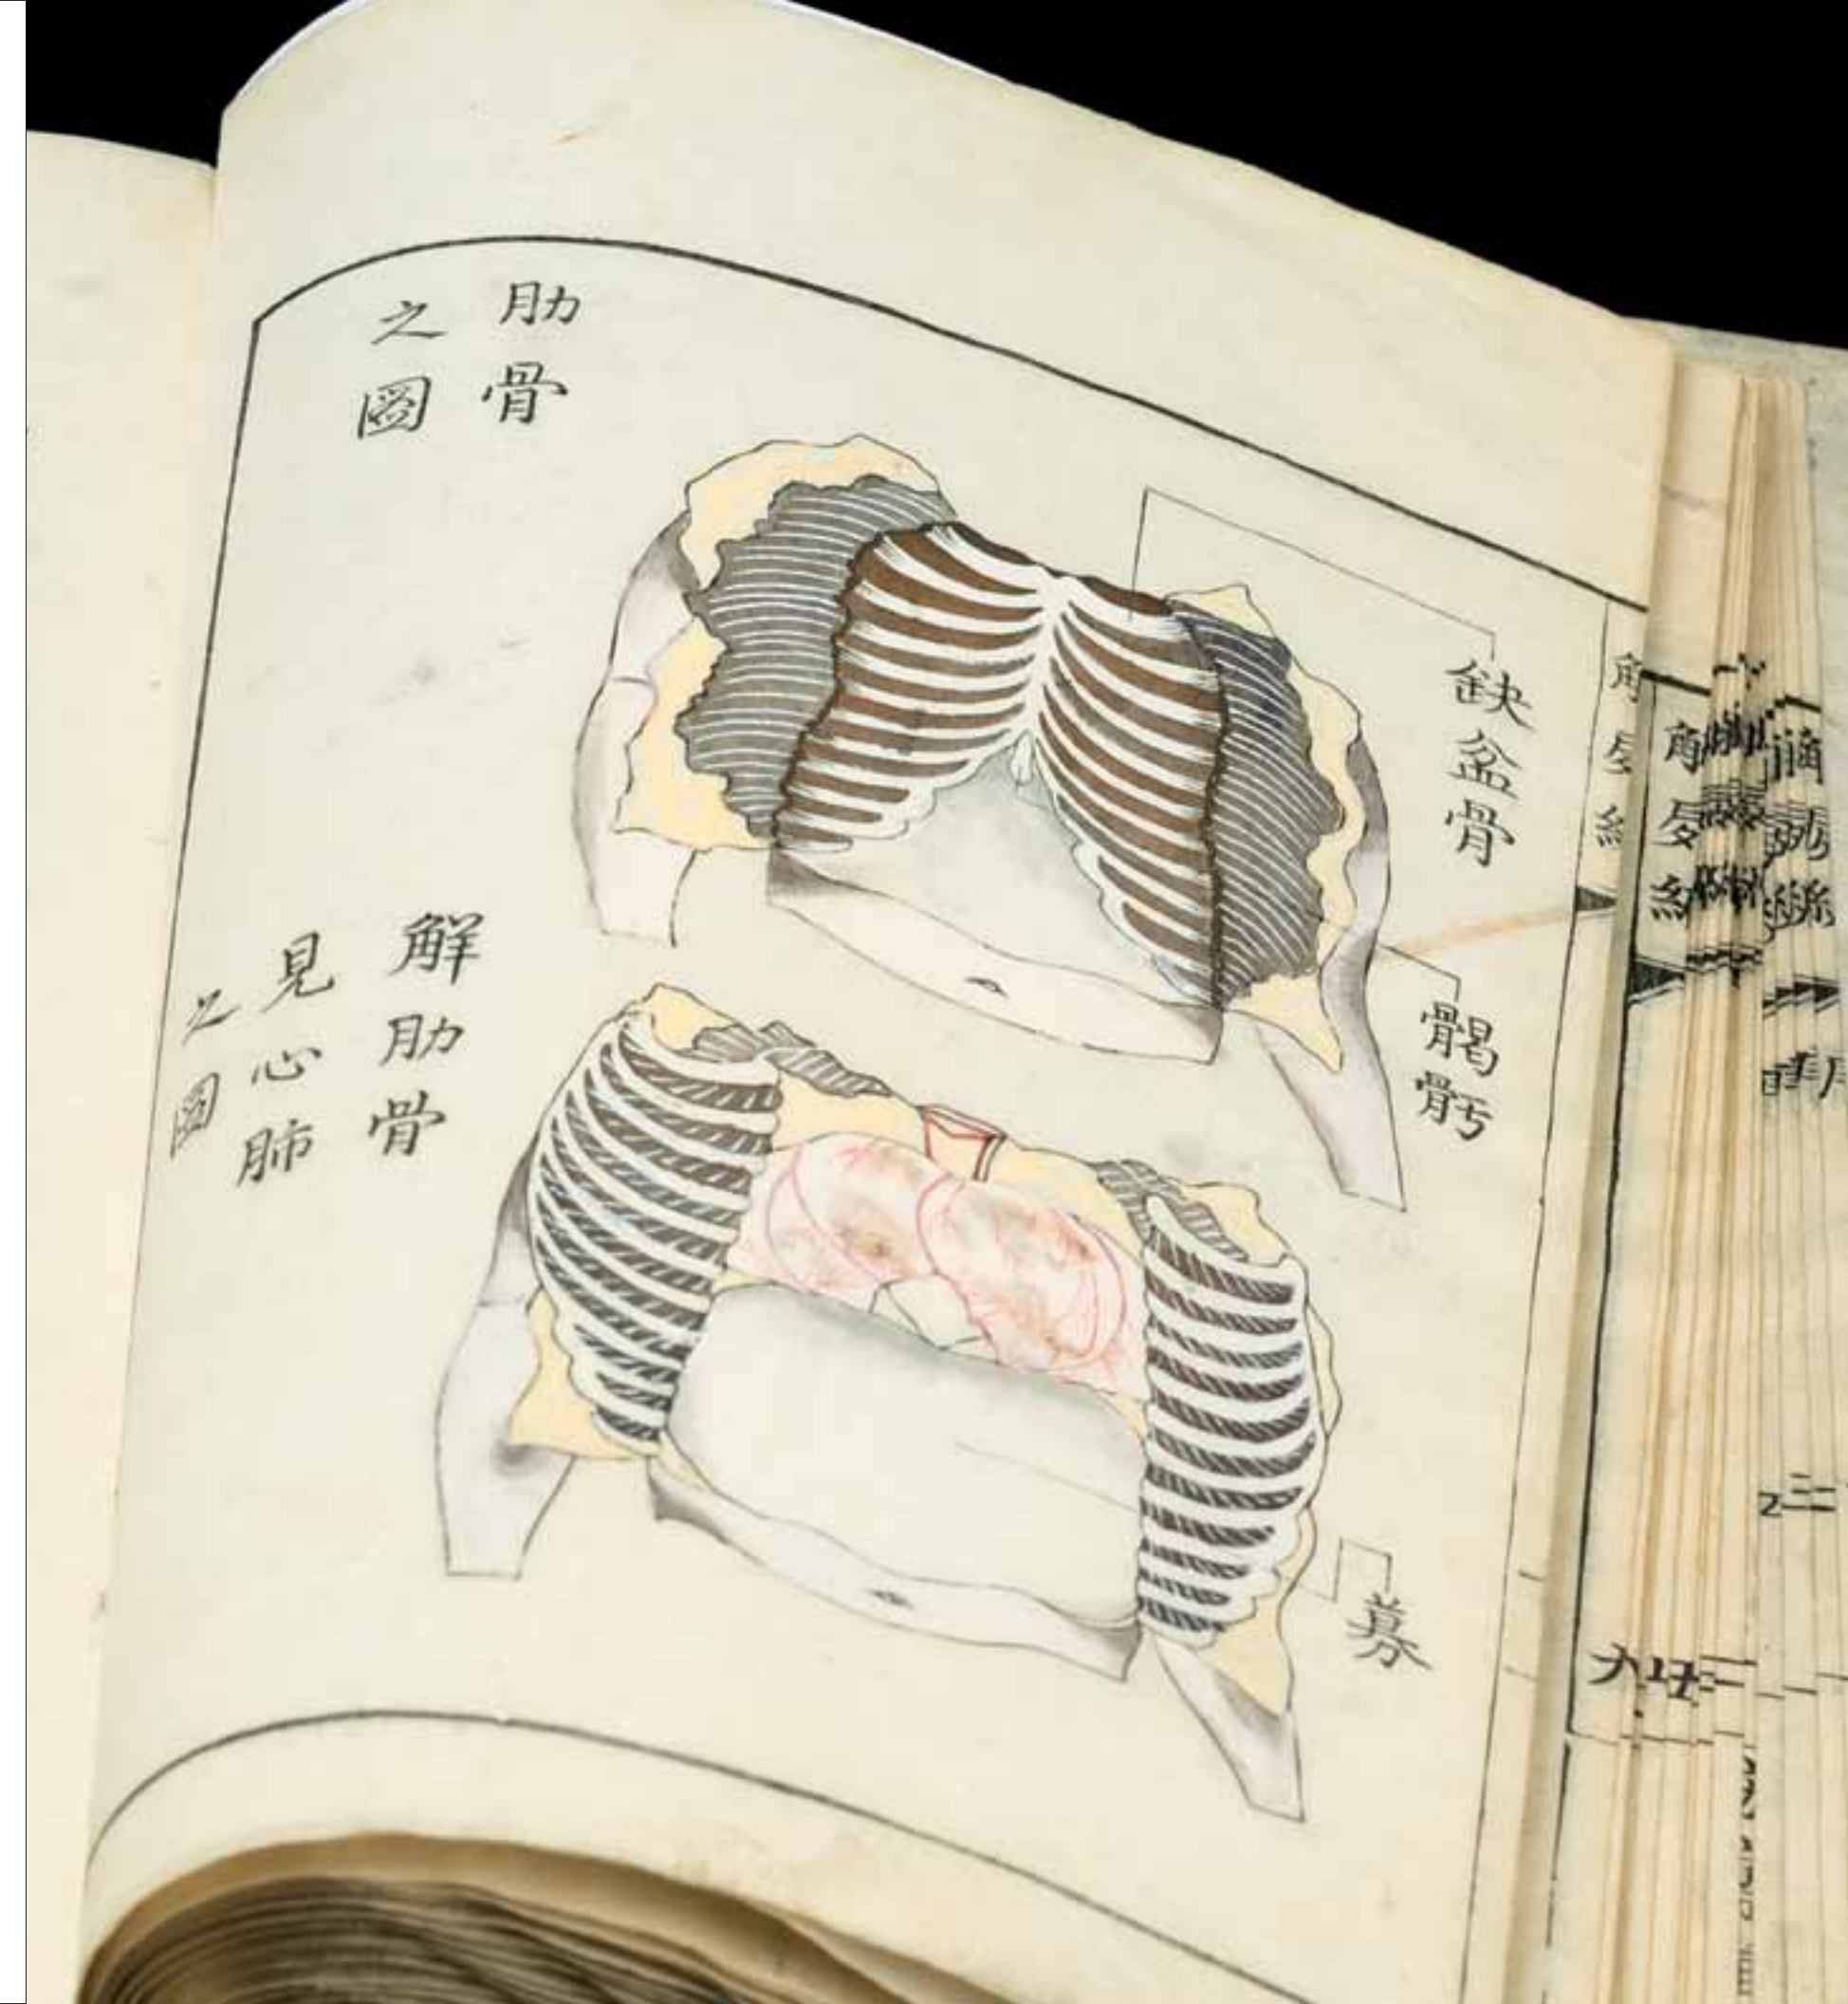 肋骨
之圖
缺盆骨
𩩲骬
解肋骨
見心肺
之圖
募